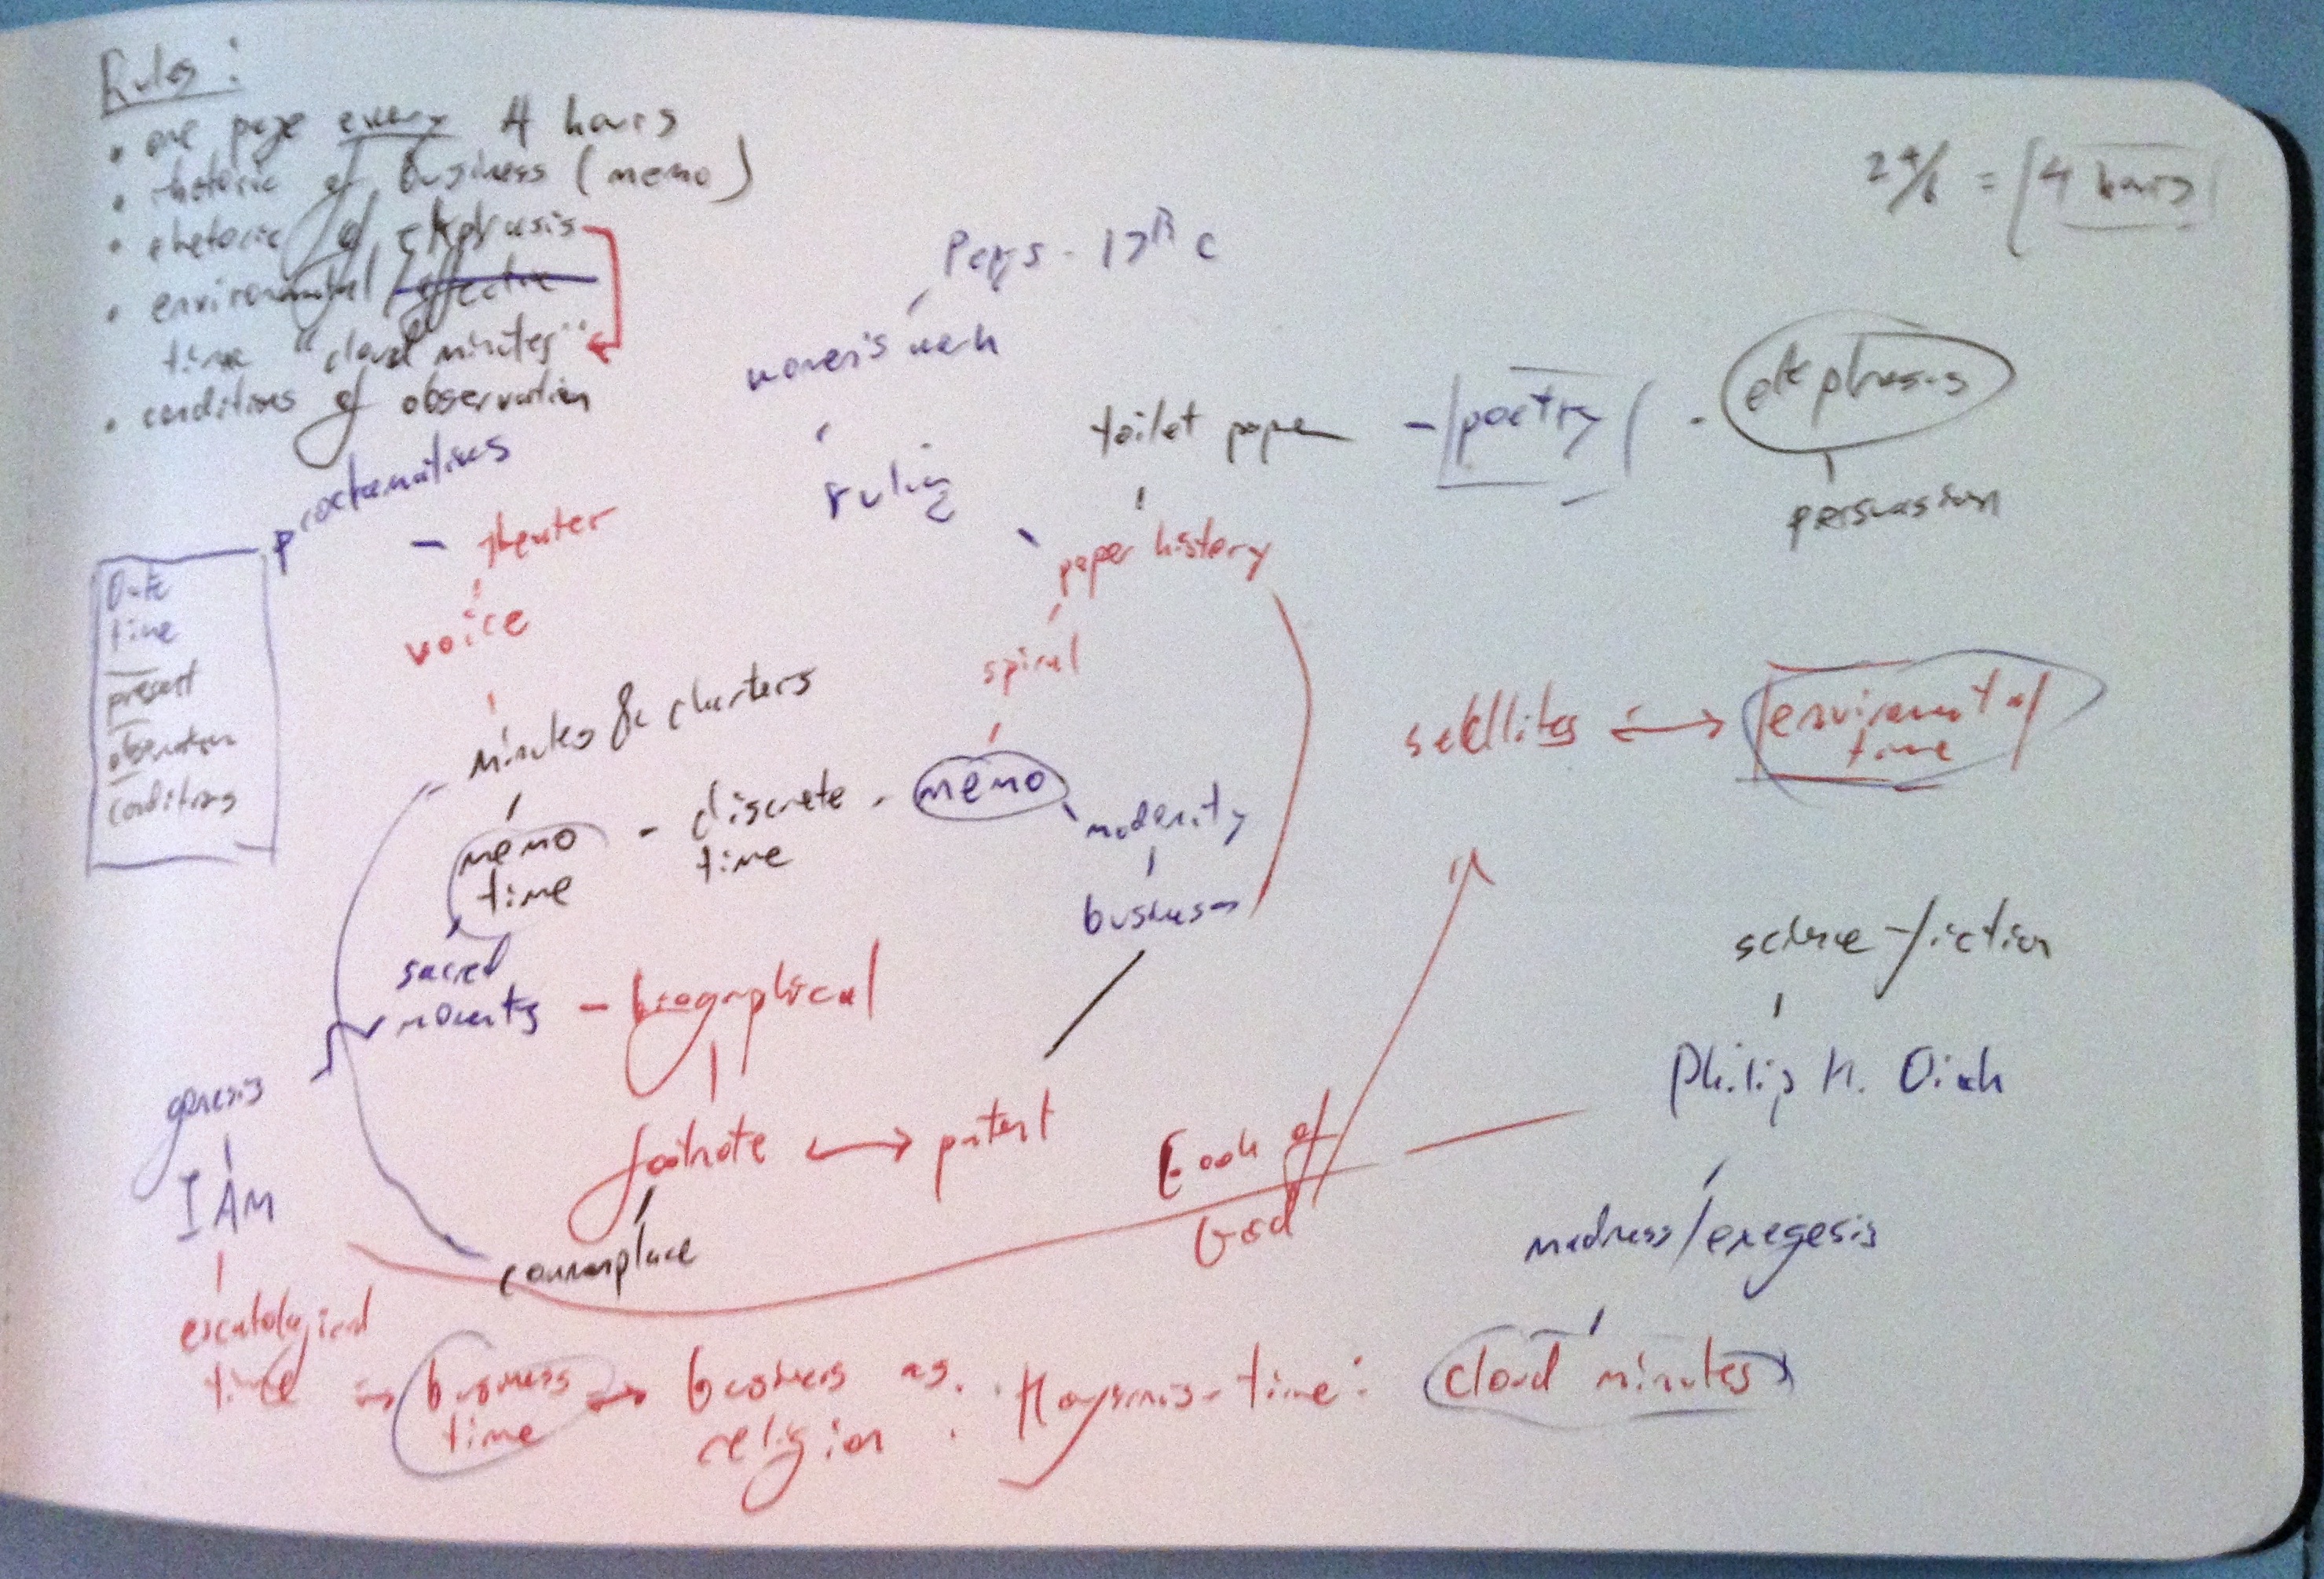 Rules:
• one page every 4 hours
• rhetoric of business (memo)
• rhetoric of ekphrasis
• environmental
time "cloud minutes"
• conditions of observation
24/6 = 4 hours
Pepys - 17th C
women's work
ruling
toilet paper - poetry - ekphrasis
persuasion
theater
voice
paper history
spiral
Date
time
present
observation
conditions
minutes & charters
memo time - discrete time - memo
modernity
business
satellites ↔ environmental time
sacred moments - biographical
science-fiction
Philip K. Dick
genesis
I AM
footnote ↔ patent
Book of God
madness/exegesis
commonplace
escatological time
business time
business as religion
time:
cloud minutes